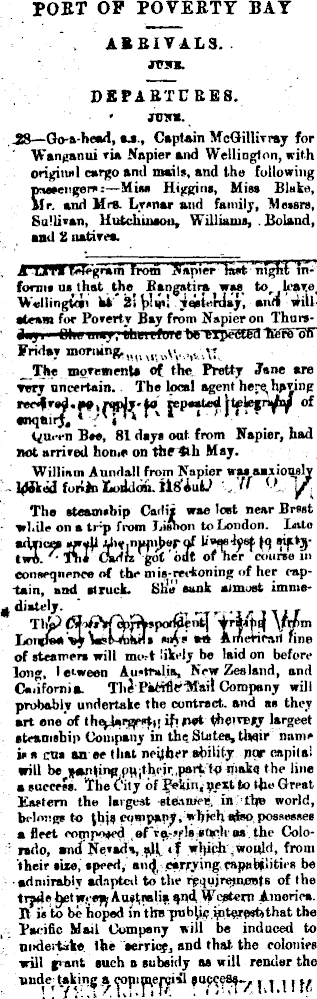 PORT OF POVERTY BAY
ARRIVALS.
JUNE.
DEPARTURES.
JUNE.
28—Go-a-head, s.s., Captain McGillivray for
Wanganui via Napier and Wellington, with
original cargo and mails, and the following
passengers:—Miss Higgins, Miss Blake,
Mr. and Mrs. Lysnar and family, Messrs,
Sullivan, Hutchinson, Williams, Boland,
and 2 natives.
A LATE telegram from Napier last night in-
forms us that the Rangatira was to leave
Wellington at 2 p.m. yesterday, and will
steam for Poverty Bay from Napier on Thurs-
day. She may, therefore be expected here on
Friday morning.
The movements of the Pretty Jane are
very uncertain. The local agent here having
received no reply to repeated telegrams of
enquiry.
Queen Bee, 81 days out from Napier, had
not arrived home on the 4th May.
William Aundall from Napier was anxiously
looked for in London. 118 out.
The steamship Cadiz was lost near Brest
while on a trip from Lisbon to London. Late
advices swell the number of lives lost to sixty-
two. The Cadiz got out of her course in
consequence of the mis-reckoning of her cap-
tain, and struck. She sunk almost imme-
diately.
The correspondent writing from
London by last mails says an American line
of steamers will most likely be laid on before
long, between Australia, New Zealand, and
California. The Pacific Mail Company will
probably undertake the contract. and as they
art one of the largest, if not the very largest
steamship Company in the States, their name
is a guarantee that neither ability nor capital
will be wanting on their part to make the line
a success. The City of Pekin, next to the Great
Eastern the largest steamer in the world,
belongs to this company, which also possesses
a fleet composed of vessels such as the Colo-
rado, and Nevada, all of which would, from
their size, speed, and carrying capabilities be
admirably adapted to the requirements of the
trade between Australia and Western America.
It is to be hoped in the public interest, that the
Pacific Mail Company will be induced to
undertake the service, and that the colonies
will grant such a subsidy as will render the
undertaking a commercial success.